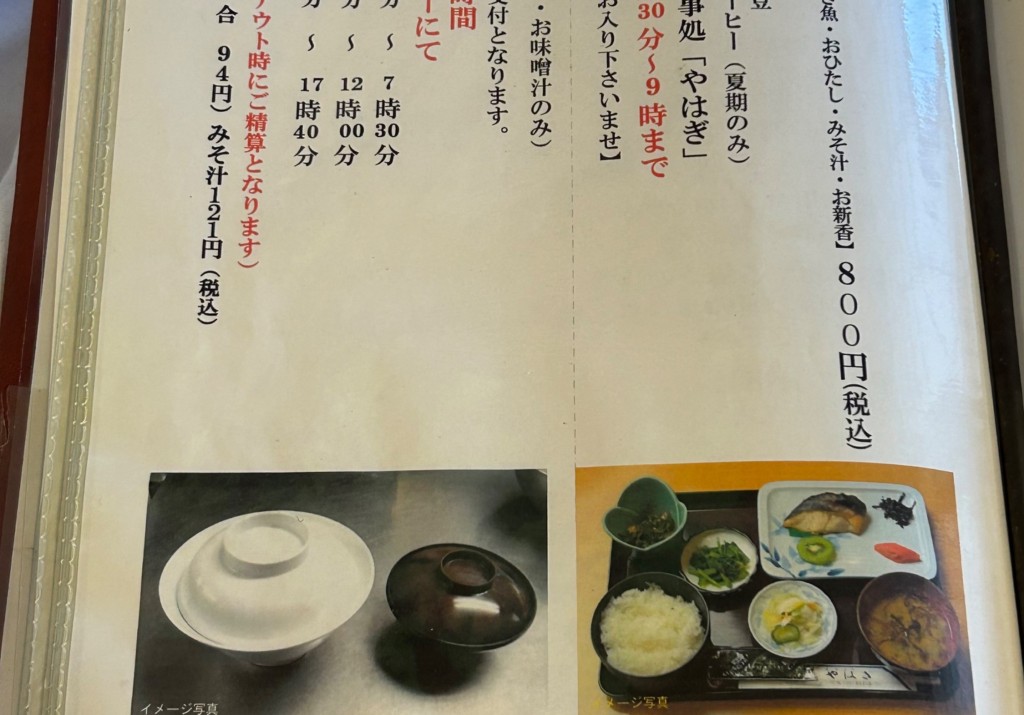 魚・おひたし・みそ汁・お新香】800円(税込)
豆
ーヒー(夏期のみ)
事処「やはぎ」
30分〜9時まで
お入り下さいませ】
・お味噌汁のみ)
受付となります。
時間
ーにて
分 〜 7時30分
分 〜 12時00分
分 〜 17時40分
アウト時にご精算となります)
合 94円)みそ汁121円(税込)
イメージ写真
メージ写真